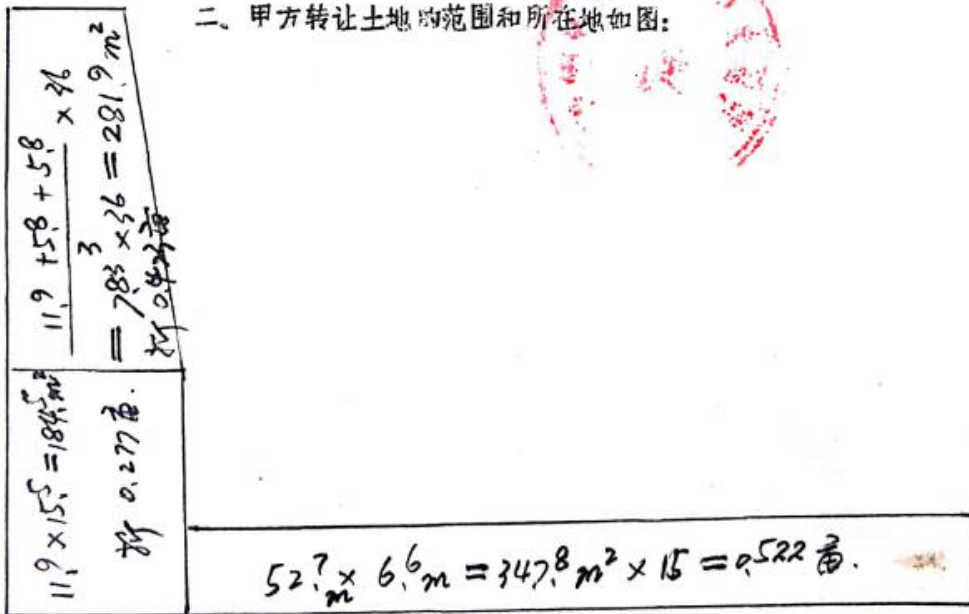 二。甲方转让土地的范围和所在地如图:
11.9 + 5.8 + 5.8 × 36
3
= 7.83 × 36 = 281.9 m²
折 0.423亩
11.9 × 15.5 = 184.5 m²
折 0.277亩.
52.7m × 6.6m = 347.8 m² × 15 = 0.522亩.